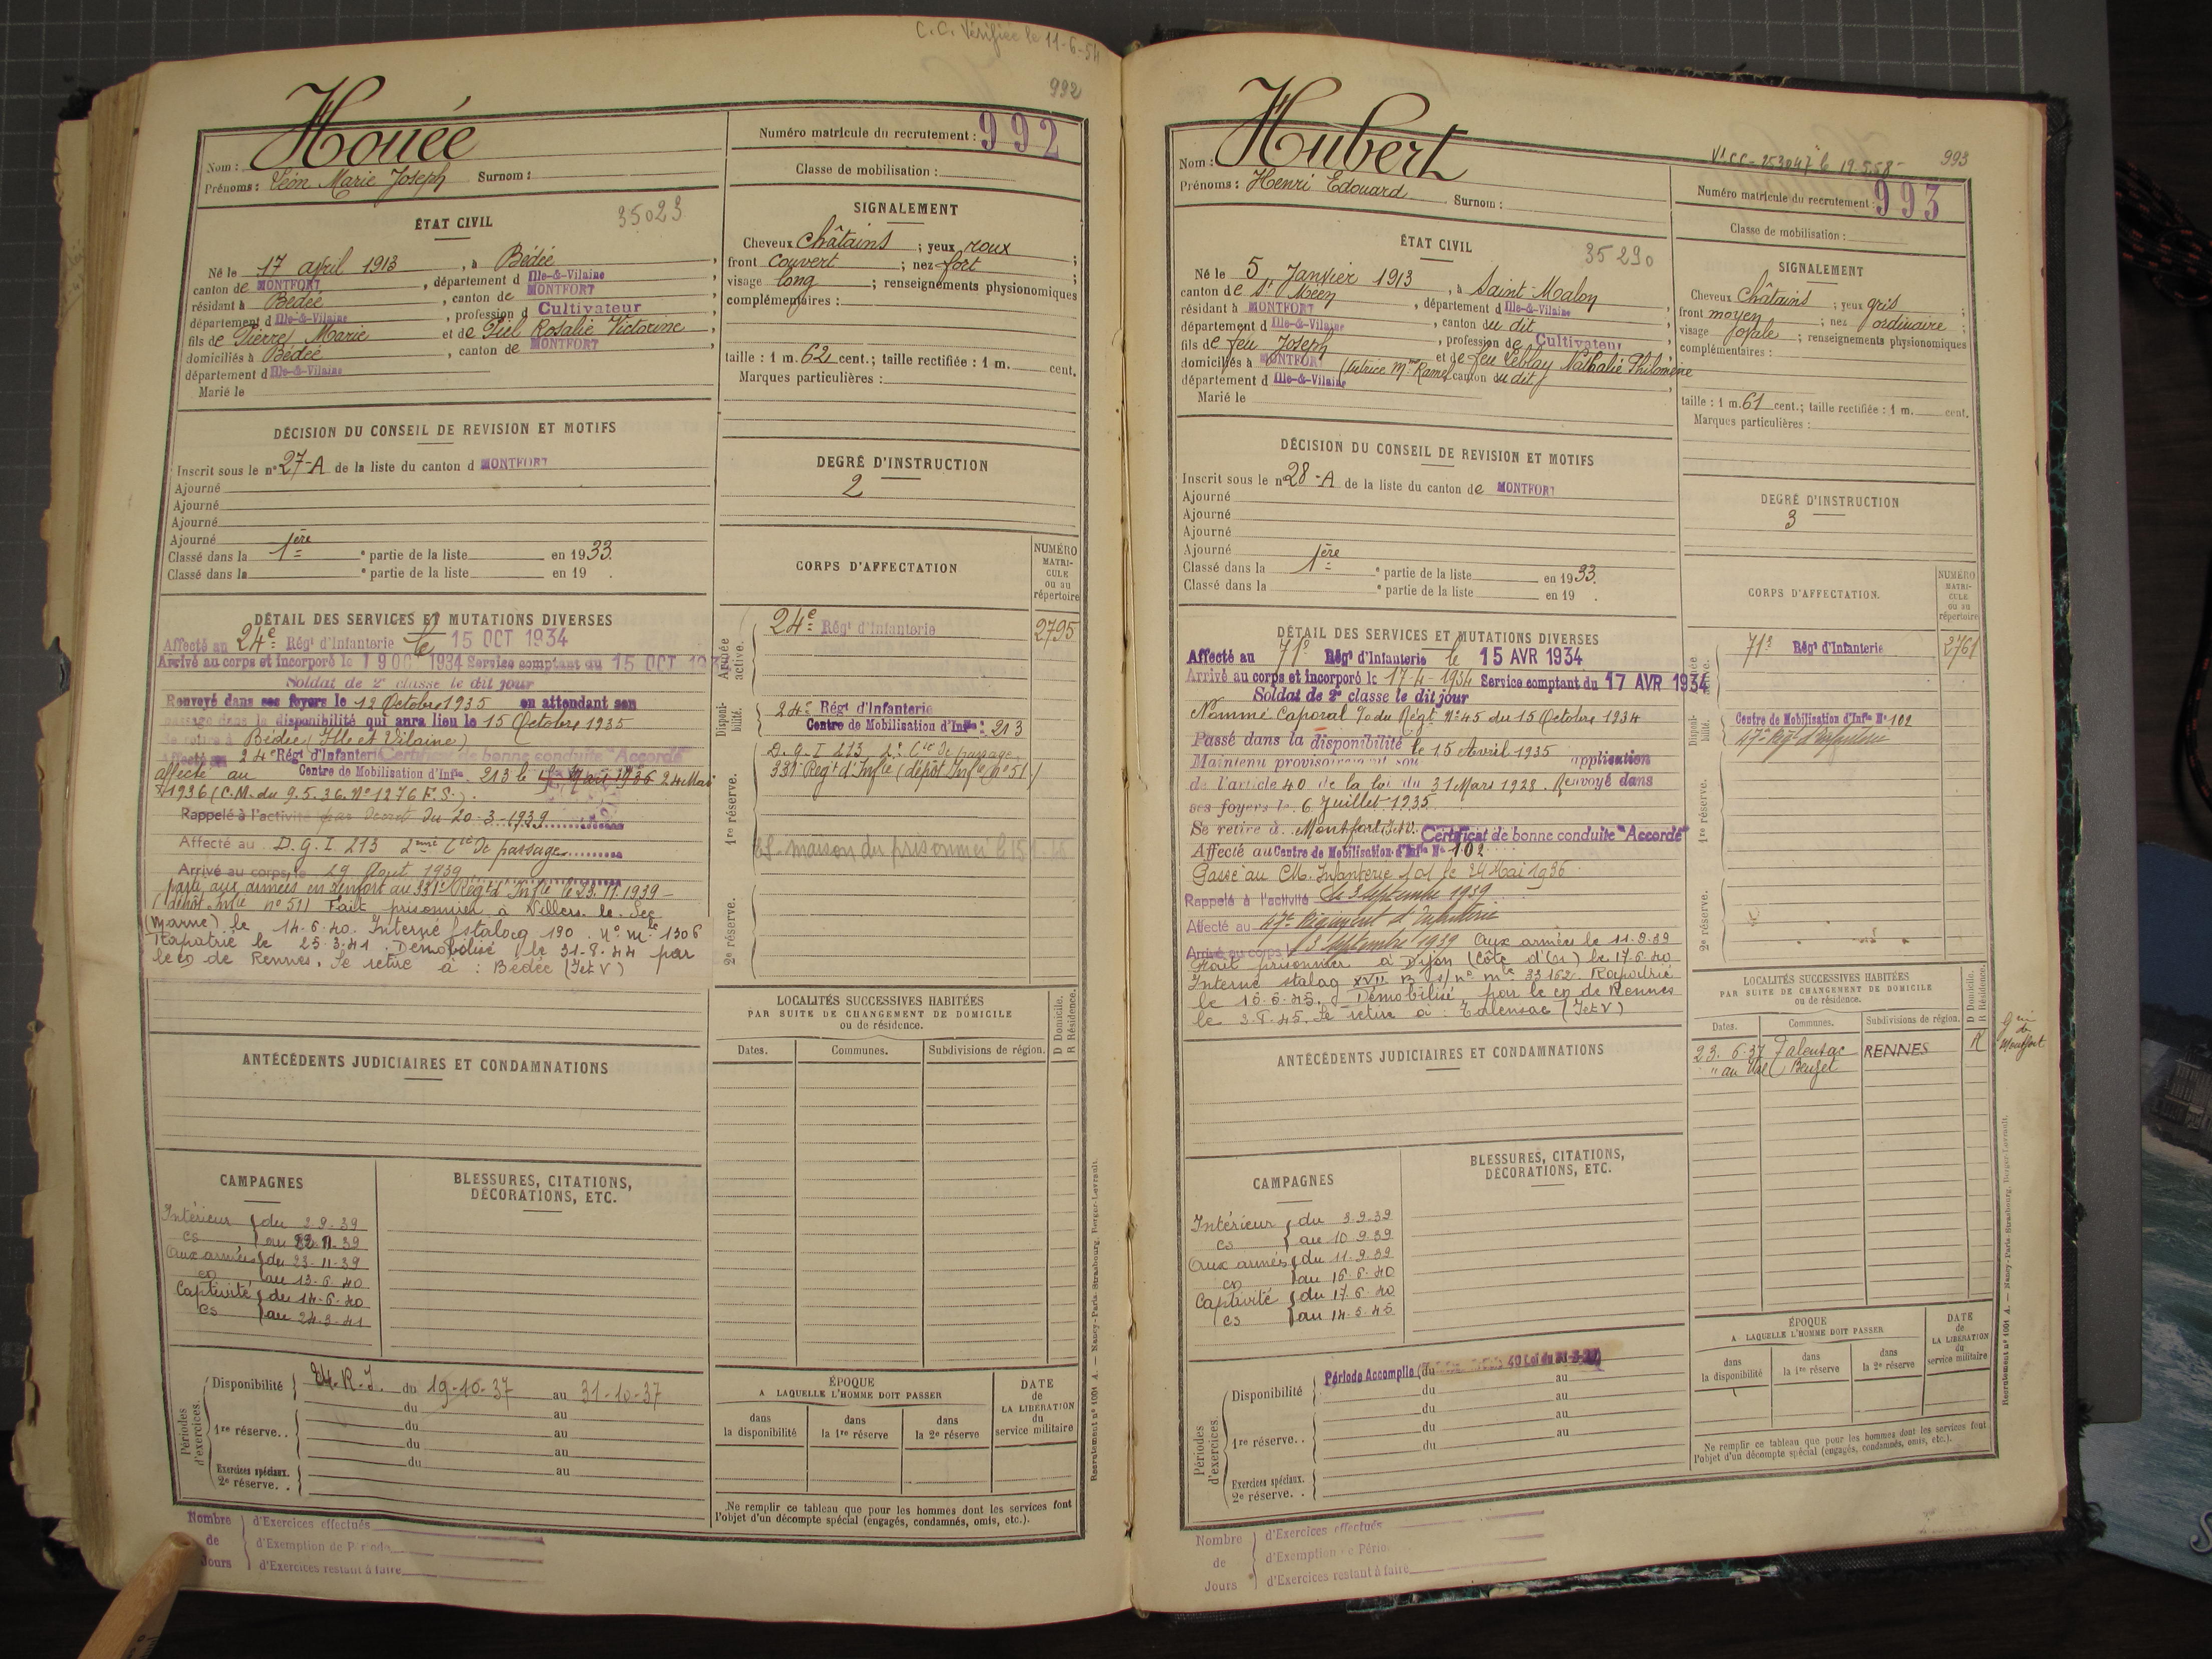 C.C. Vérifiée le 11-6-54
992
Nom : Houée
Prénoms : Léon Marie Joseph Surnom :
Numéro matricule du recrutement : 992
Classe de mobilisation :
ÉTAT CIVIL
35023
Né le 17 april 1913, à Bédée,
canton de MONTFORT, département d Ille-&-Vilaine
résidant à Bédée, canton de MONTFORT,
département d Ille-&-Vilaine, profession d Cultivateur,
fils de Pierre Marie et de Piel Rosalie Victorine,
domiciliés à Bédée, canton de MONTFORT,
département d Ille-&-Vilaine
Marié le
SIGNALEMENT
Cheveux châtains ; yeux roux ;
front couvert ; nez fort ;
visage long ; renseignements physionomiques
complémentaires :
taille : 1 m. 62 cent.; taille rectifiée : 1 m. cent.
Marques particulières :
DÉCISION DU CONSEIL DE REVISION ET MOTIFS
Inscrit sous le n° 27-A de la liste du canton d MONTFORT
Ajourné
Ajourné
Ajourné
Ajourné
Classé dans la 1ère e partie de la liste en 1933.
Classé dans la e partie de la liste en 19 .
DEGRÉ D'INSTRUCTION
2
CORPS D'AFFECTATION
NUMÉRO MATRI-CULE ou au répertoire
DÉTAIL DES SERVICES ET MUTATIONS DIVERSES
Affecté au 24e Régt d'Infanterie le 15 OCT 1934
Arrivé au corps et incorporé le 19 OCT 1934 Service comptant du 15 OCT 193
Soldat de 2e classe le dit jour
Renvoyé dans ses foyers le 12 Octobre 1935 en attendant son
passage dans la disponibilité qui aura lieu le 15 Octobre 1935
Se retire à Bédée (Ille et Vilaine)
Affecté au 24e Régt d'Infanterie Certificat de bonne conduite "Accordé"
affecté au Centre de Mobilisation d'Infie 213 le 24 Mai
1936 (C.M. du 9.5.36. N° 1276 F.S.).
Rappelé à l'activité du 20-3-1939
Affecté au D.G.I 213 2ème Cie de passage
Arrivé au corps le 29 Août 1939
parti aux armées en renfort au 331e Régt d'Infie le 23.11.1939 -
(dépôt Infie n° 51) Fait prisonnier à Villers le Sec
(Marne) le 14-6-40. Interné stalag 190. n° mle 1306
Rapatrié le 25-3-41. Démobilisé le 31-8-44 par
le CD de Rennes. Se retire à : Bédée (I et V)
Armée active.
24e Régt d'Infanterie 2795
Disponi-bilité.
24e Régt d'Infanterie
Centre de Mobilisation d'Infie : 213
1re réserve.
D.G.I 213 2e Cie de passage
331e Régt d'Infie (dépôt Infie n° 51)
maison du prisonnier
2e réserve.
LOCALITÉS SUCCESSIVES HABITÉES
PAR SUITE DE CHANGEMENT DE DOMICILE
ou de résidence.
D Domicile. R Résidence.
Dates. Communes. Subdivisions de région.
ANTÉCÉDENTS JUDICIAIRES ET CONDAMNATIONS
CAMPAGNES
Intérieur du 2-9-39
cs au 22-11-39
Aux armées du 23-11-39
cd au 13-6-40
Captivité du 14-6-40
cs au 24-3-41
BLESSURES, CITATIONS,
DÉCORATIONS, ETC.
Périodes d'exercices.
Disponibilité 24. R.I. du 19-10-37 au 31-10-37
du au
1re réserve. . du au
du au
du au
Exercices spéciaux.
2e réserve. .
ÉPOQUE
A LAQUELLE L'HOMME DOIT PASSER
dans la disponibilité
dans la 1re réserve
dans la 2e réserve
DATE de LA LIBÉRATION du service militaire
Ne remplir ce tableau que pour les hommes dont les services font
l'objet d'un décompte spécial (engagés, condamnés, omis, etc.).
Recrutement n° 1001 A. — Nancy-Paris-Strasbourg, Berger-Levrault.
Nombre de Jours
d'Exercices effectués
d'Exemption de Période
d'Exercices restant à faire
Nom : Hubert
Prénoms : Henri Edouard Surnom :
Vé CC - 253047 le 19.5.58 -
993
Numéro matricule du recrutement : 993
Classe de mobilisation :
ÉTAT CIVIL
35290
Né le 5 Janvier 1913, à Saint-Malon
canton de St Méen, département d Ille-&-Vilaine
résidant à MONTFORT, canton du dit,
département d Ille-&-Vilaine, profession de Cultivateur
fils de feu Joseph et de feu Leblay Nathalie Philomène
domiciliés à MONTFORT (tutrice Mme Ramel canton du dit)
département d Ille-&-Vilaine
Marié le
SIGNALEMENT
Cheveux châtains ; yeux gris
front moyen ; nez ordinaire ;
visage ; renseignements physionomiques
complémentaires :
taille : 1 m. 61 cent.; taille rectifiée : 1 m. cent.
Marques particulières :
DÉCISION DU CONSEIL DE REVISION ET MOTIFS
Inscrit sous le n° 28-A de la liste du canton de MONTFORT
Ajourné
Ajourné
Ajourné
Ajourné
Classé dans la 1ère e partie de la liste en 1933.
Classé dans la e partie de la liste en 19 .
DEGRÉ D'INSTRUCTION
3
CORPS D'AFFECTATION.
NUMÉRO MATRI-CULE ou au répertoire
DÉTAIL DES SERVICES ET MUTATIONS DIVERSES
Affecté au 71e Régt d'Infanterie le 15 AVR 1934
Arrivé au corps et incorporé le 17-4-1934 Service comptant du 17 AVR 1934
Soldat de 2e classe le dit jour
Nommé Caporal % du Régt N° 45 du 15 Octobre 1934
Passé dans la disponibilité le 15 Avril 1935
Maintenu provisoirement sous application
de l'article 40 de la loi du 31 Mars 1928. Renvoyé dans
ses foyers le 6 Juillet 1935
Se retire à Montfort (I et V). Certificat de bonne conduite "Accordé"
Affecté au Centre de Mobilisation d'Infie N° 102
Passé au CM. Infanterie 101 le 24 Mai 1936
Rappelé à l'activité le 3 Septembre 1939
Affecté au 47e Régiment d'Infanterie
Arrivé au corps le 3 Septembre 1939 Aux armées le 11-9-39
Fait prisonnier à Dijon (Côte d'Or) le 17-6-40
Interné stalag XVII B s/n° mle 33162 Rapatrié
le 15-5-45. Démobilisé par le CD de Rennes
le 3-8-45. Se retire à : Talensac (I et V)
71e Régt d'Infanterie 2761
Disponi-bilité.
Centre de Mobilisation d'Infie N° 102
47e Régt d'infanterie
1re réserve.
2e réserve.
LOCALITÉS SUCCESSIVES HABITÉES
PAR SUITE DE CHANGEMENT DE DOMICILE
ou de résidence.
D Domicile. R Résidence.
Dates. Communes. Subdivisions de région.
23.6.37 Talensac RENNES R
" au Val Beuzel
Gie de Montfort
ANTÉCÉDENTS JUDICIAIRES ET CONDAMNATIONS
CAMPAGNES
Intérieur du 3-9-39
cs au 10-9-39
Aux armées du 11-9-39
cd au 16-6-40
Captivité du 17-6-40
cs au 14-5-45
BLESSURES, CITATIONS,
DÉCORATIONS, ETC.
Périodes d'exercices.
Disponibilité Période Accomplie (du 49 Loi du 31-3-28)
du au
du au
1re réserve. . du au
du au
Exercices spéciaux.
2e réserve. .
ÉPOQUE
A LAQUELLE L'HOMME DOIT PASSER
dans la disponibilité
dans la 1re réserve
dans la 2e réserve
DATE de LA LIBÉRATION du service militaire
Ne remplir ce tableau que pour les hommes dont les services font
l'objet d'un décompte spécial (engagés, condamnés, omis, etc.).
Recrutement n° 1001 A. — Nancy-Paris-Strasbourg, Berger-Levrault.
Nombre de Jours
d'Exercices effectués
d'Exemption de Pério
d'Exercices restant à faire